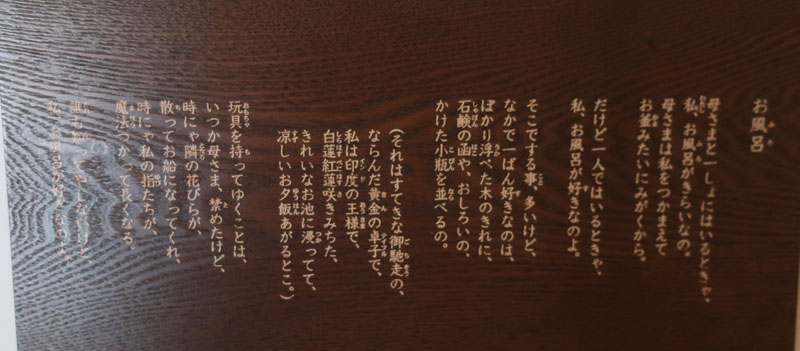 お風呂
母さまと一しょにはいるときゃ、
私、お風呂がきらいなの。
母さまは私をつかまえて
お釜みたいにみがくから。
だけど一人ではいるときゃ、
私、お風呂が好きなのよ。
そこでする事、多いけど、
なかで一ばん好きなのは、
ぽかり浮べた木のきれに、
石鹸の函や、おしろいの、
かけた小瓶を並べるの。
(それはすてきな御馳走の、
ならんだ黄金の卓子で、
私は印度の王様で、
白蓮紅蓮咲きみちた、
きれいなお池に浸ってて、
涼しいお夕飯あがるとこ。)
玩具を持ってゆくことは、
いつか母さま、禁めたけど、
時にゃ隣の花びらが、
散ってお船になってくれ、
時にゃ私の指たちが、
魔法つかって長くなる。
私、お風呂が好きなのよ。